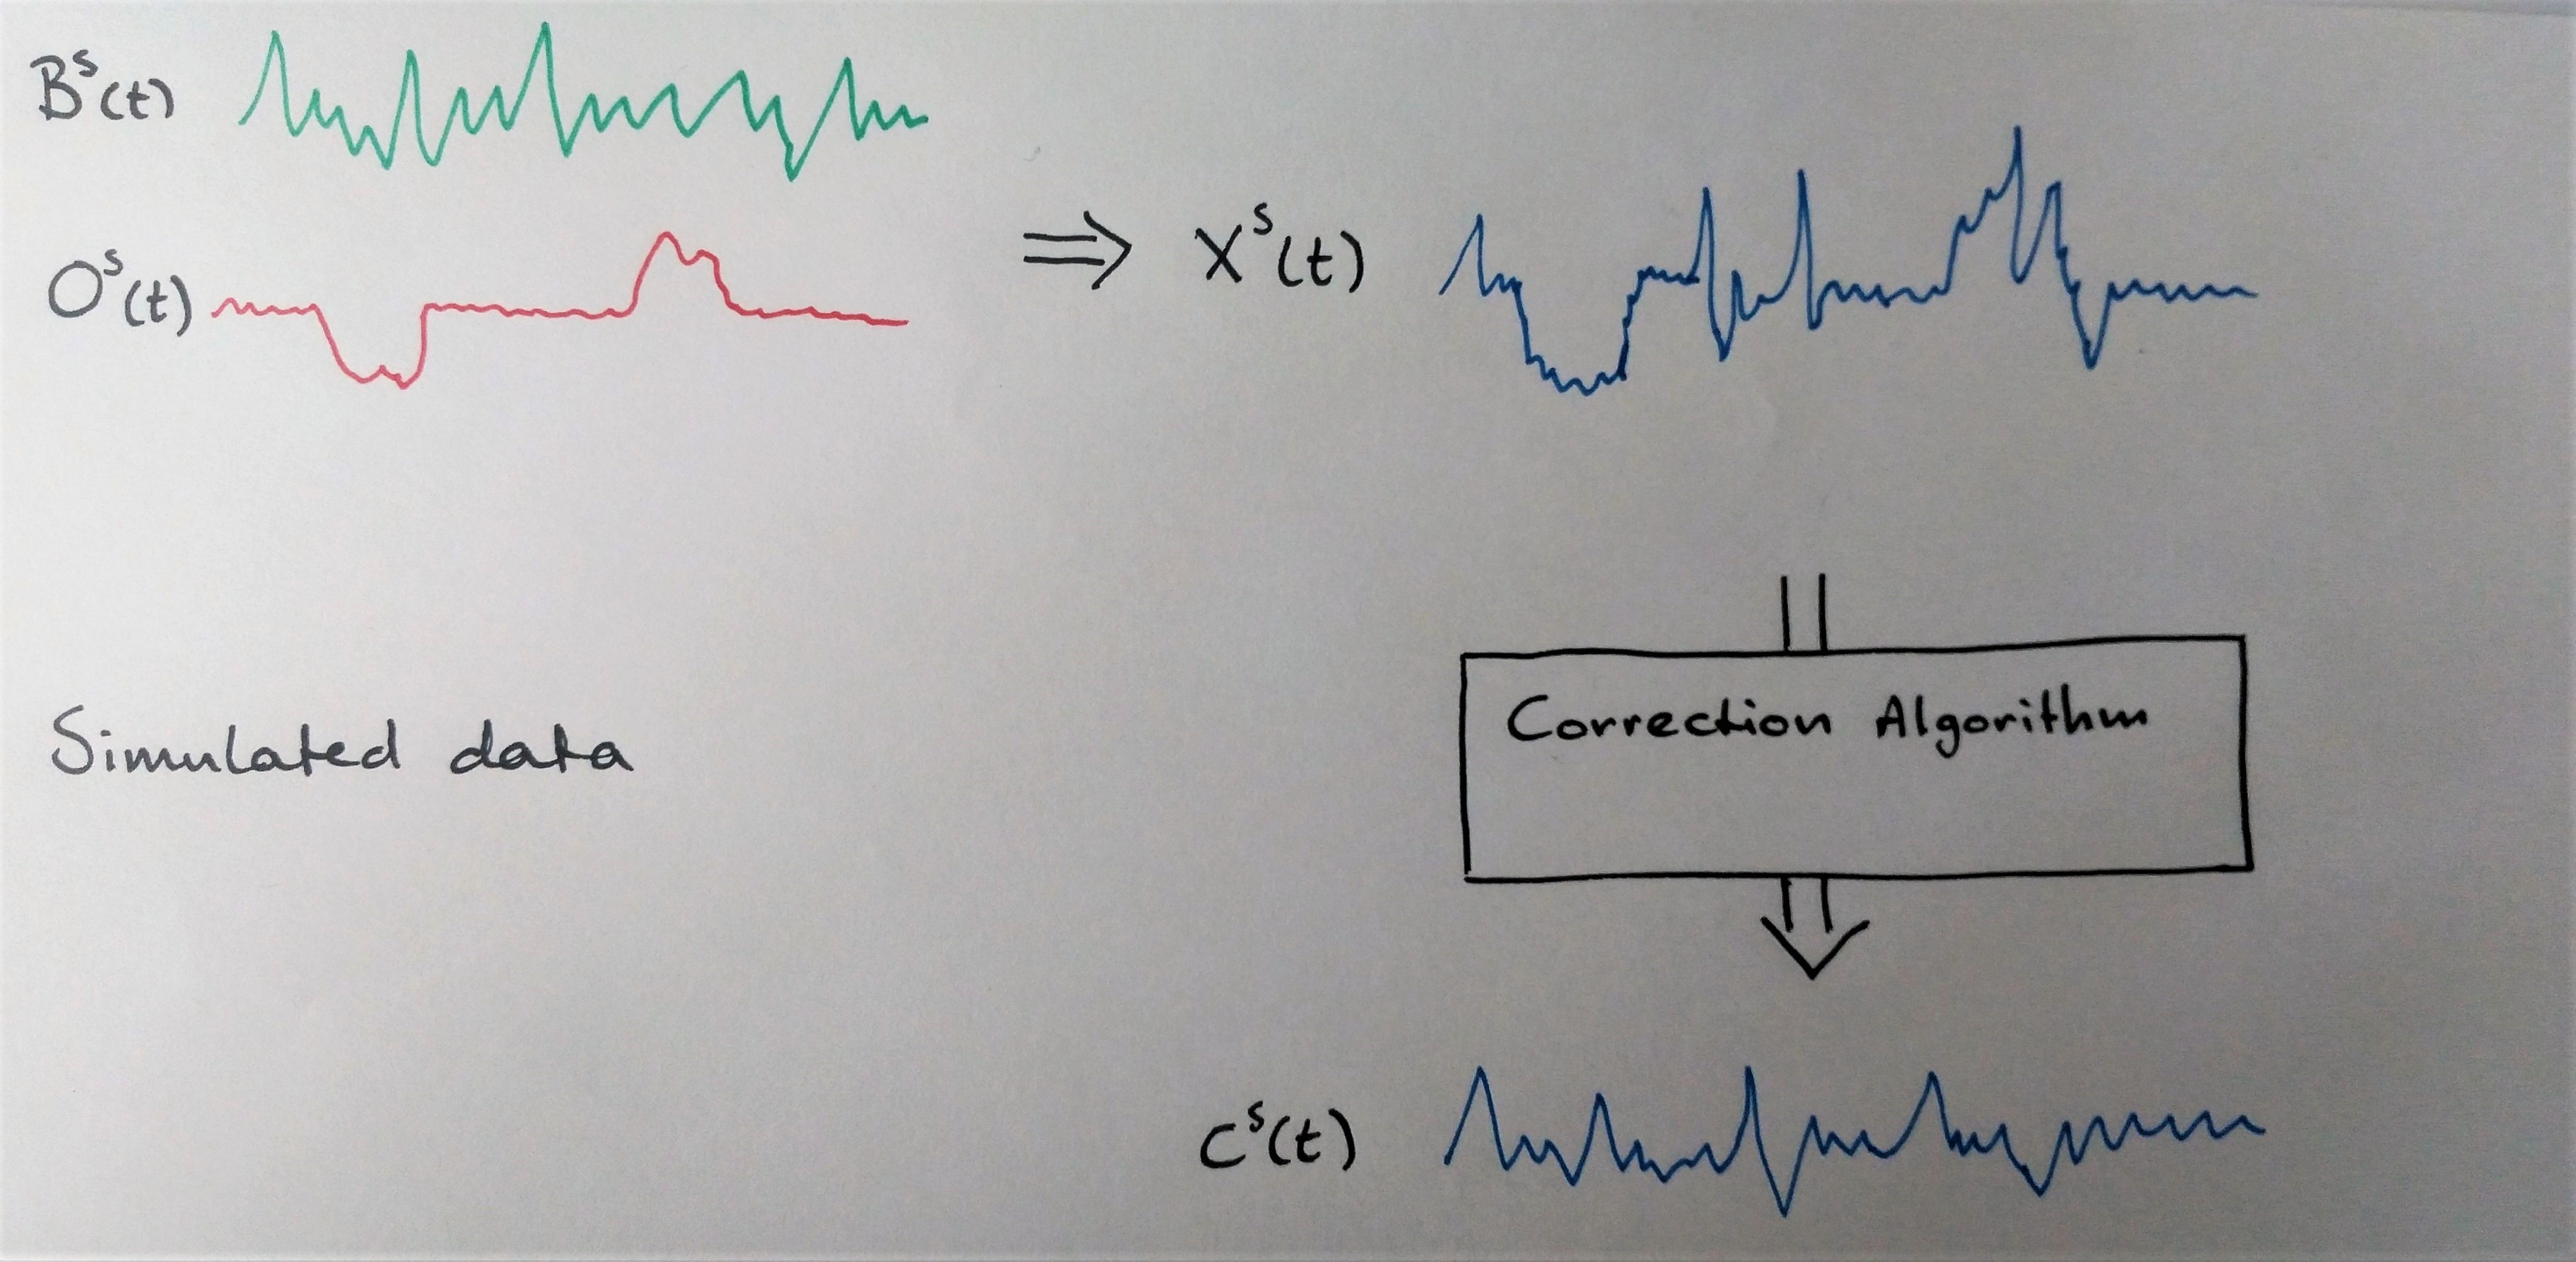 Bˢ(t)
Oˢ(t)
⇒ Xˢ(t)
Simulated data
Correction Algorithm
Cˢ(t)